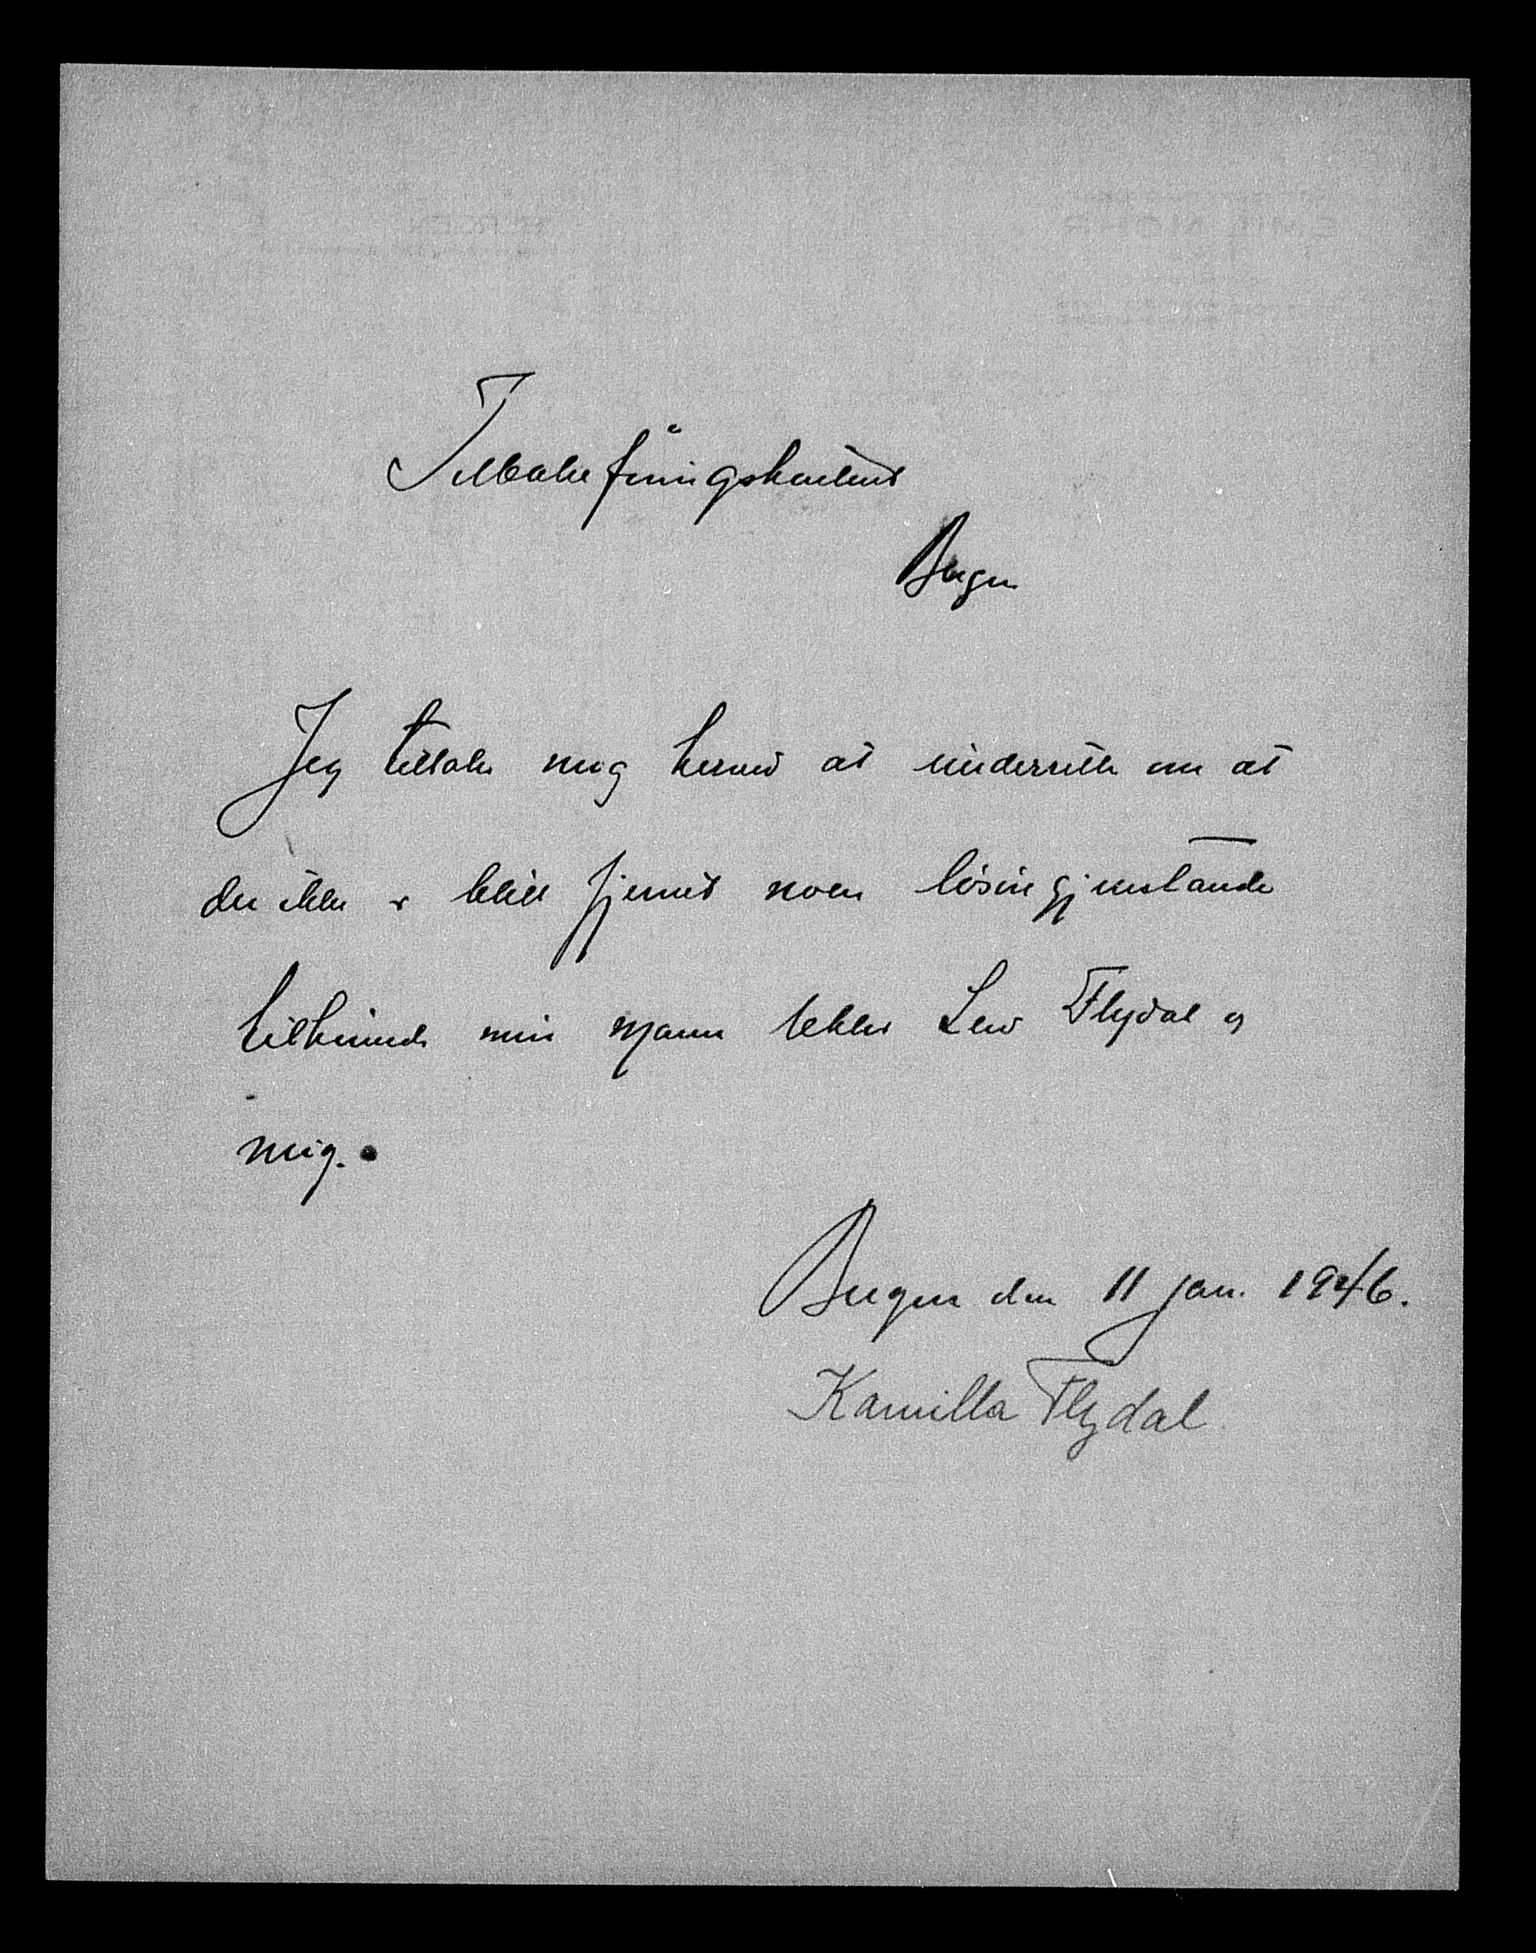 Tilbakeføringskontoret
Bergen
Jeg tillater mig herved at underrette om at
der ikke er blitt fjernet noen løsøregjenstande
tilhørende min mann Flydal og
mig.
Bergen den 11 jan. 1946.
Kamilla Flydal